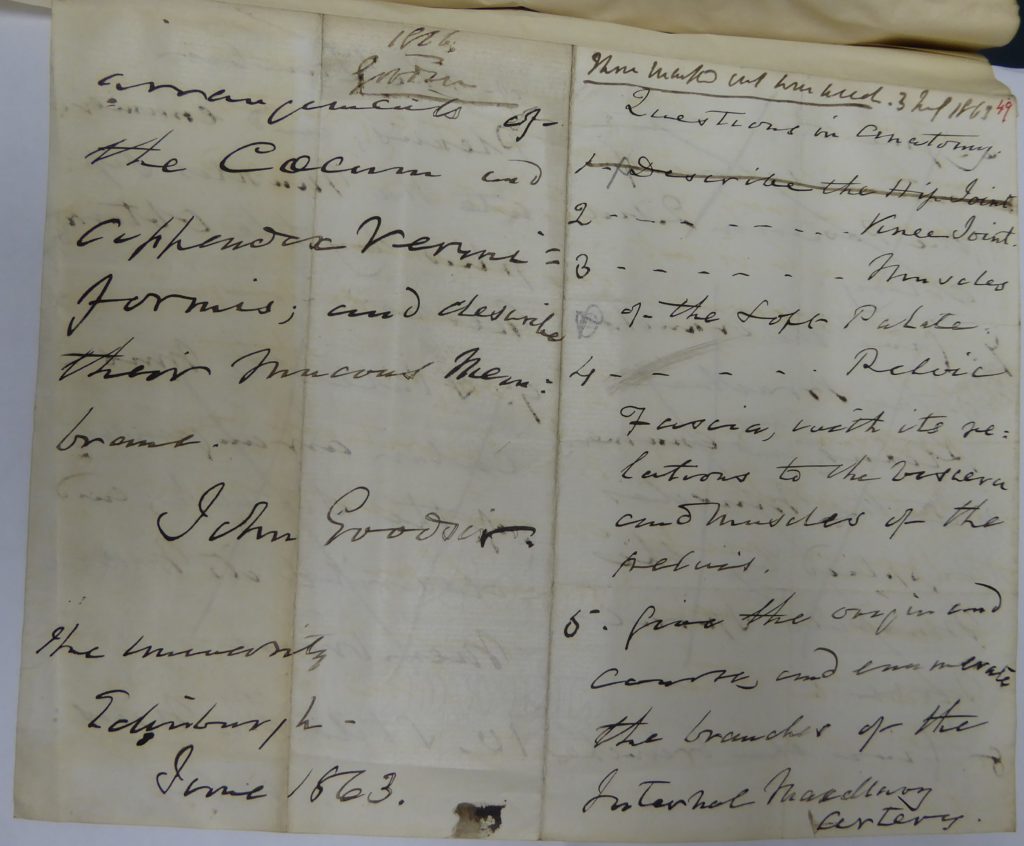 1826.
Goodsir
arrangements of
the Cœcum and
Appendix Vermi=
formis; and describe
their Mucous Mem:
brane.
John Goodsir.
The University
Edinburgh
June 1863.
Those marked out were used. 3 July 1863 49
Questions in Anatomy.
1. Describe the Hip Joint
2 - - - - - - - Knee Joint.
3 - - - - - - - Muscles
of the Soft Palate.
4 - - - - - Pelvic
Fascia, with its re:
lations to the viscera
and muscles of the
pelvis.
5. Give the origin and
course, and enumerate
the branches of the
Internal Maxillary
Artery.